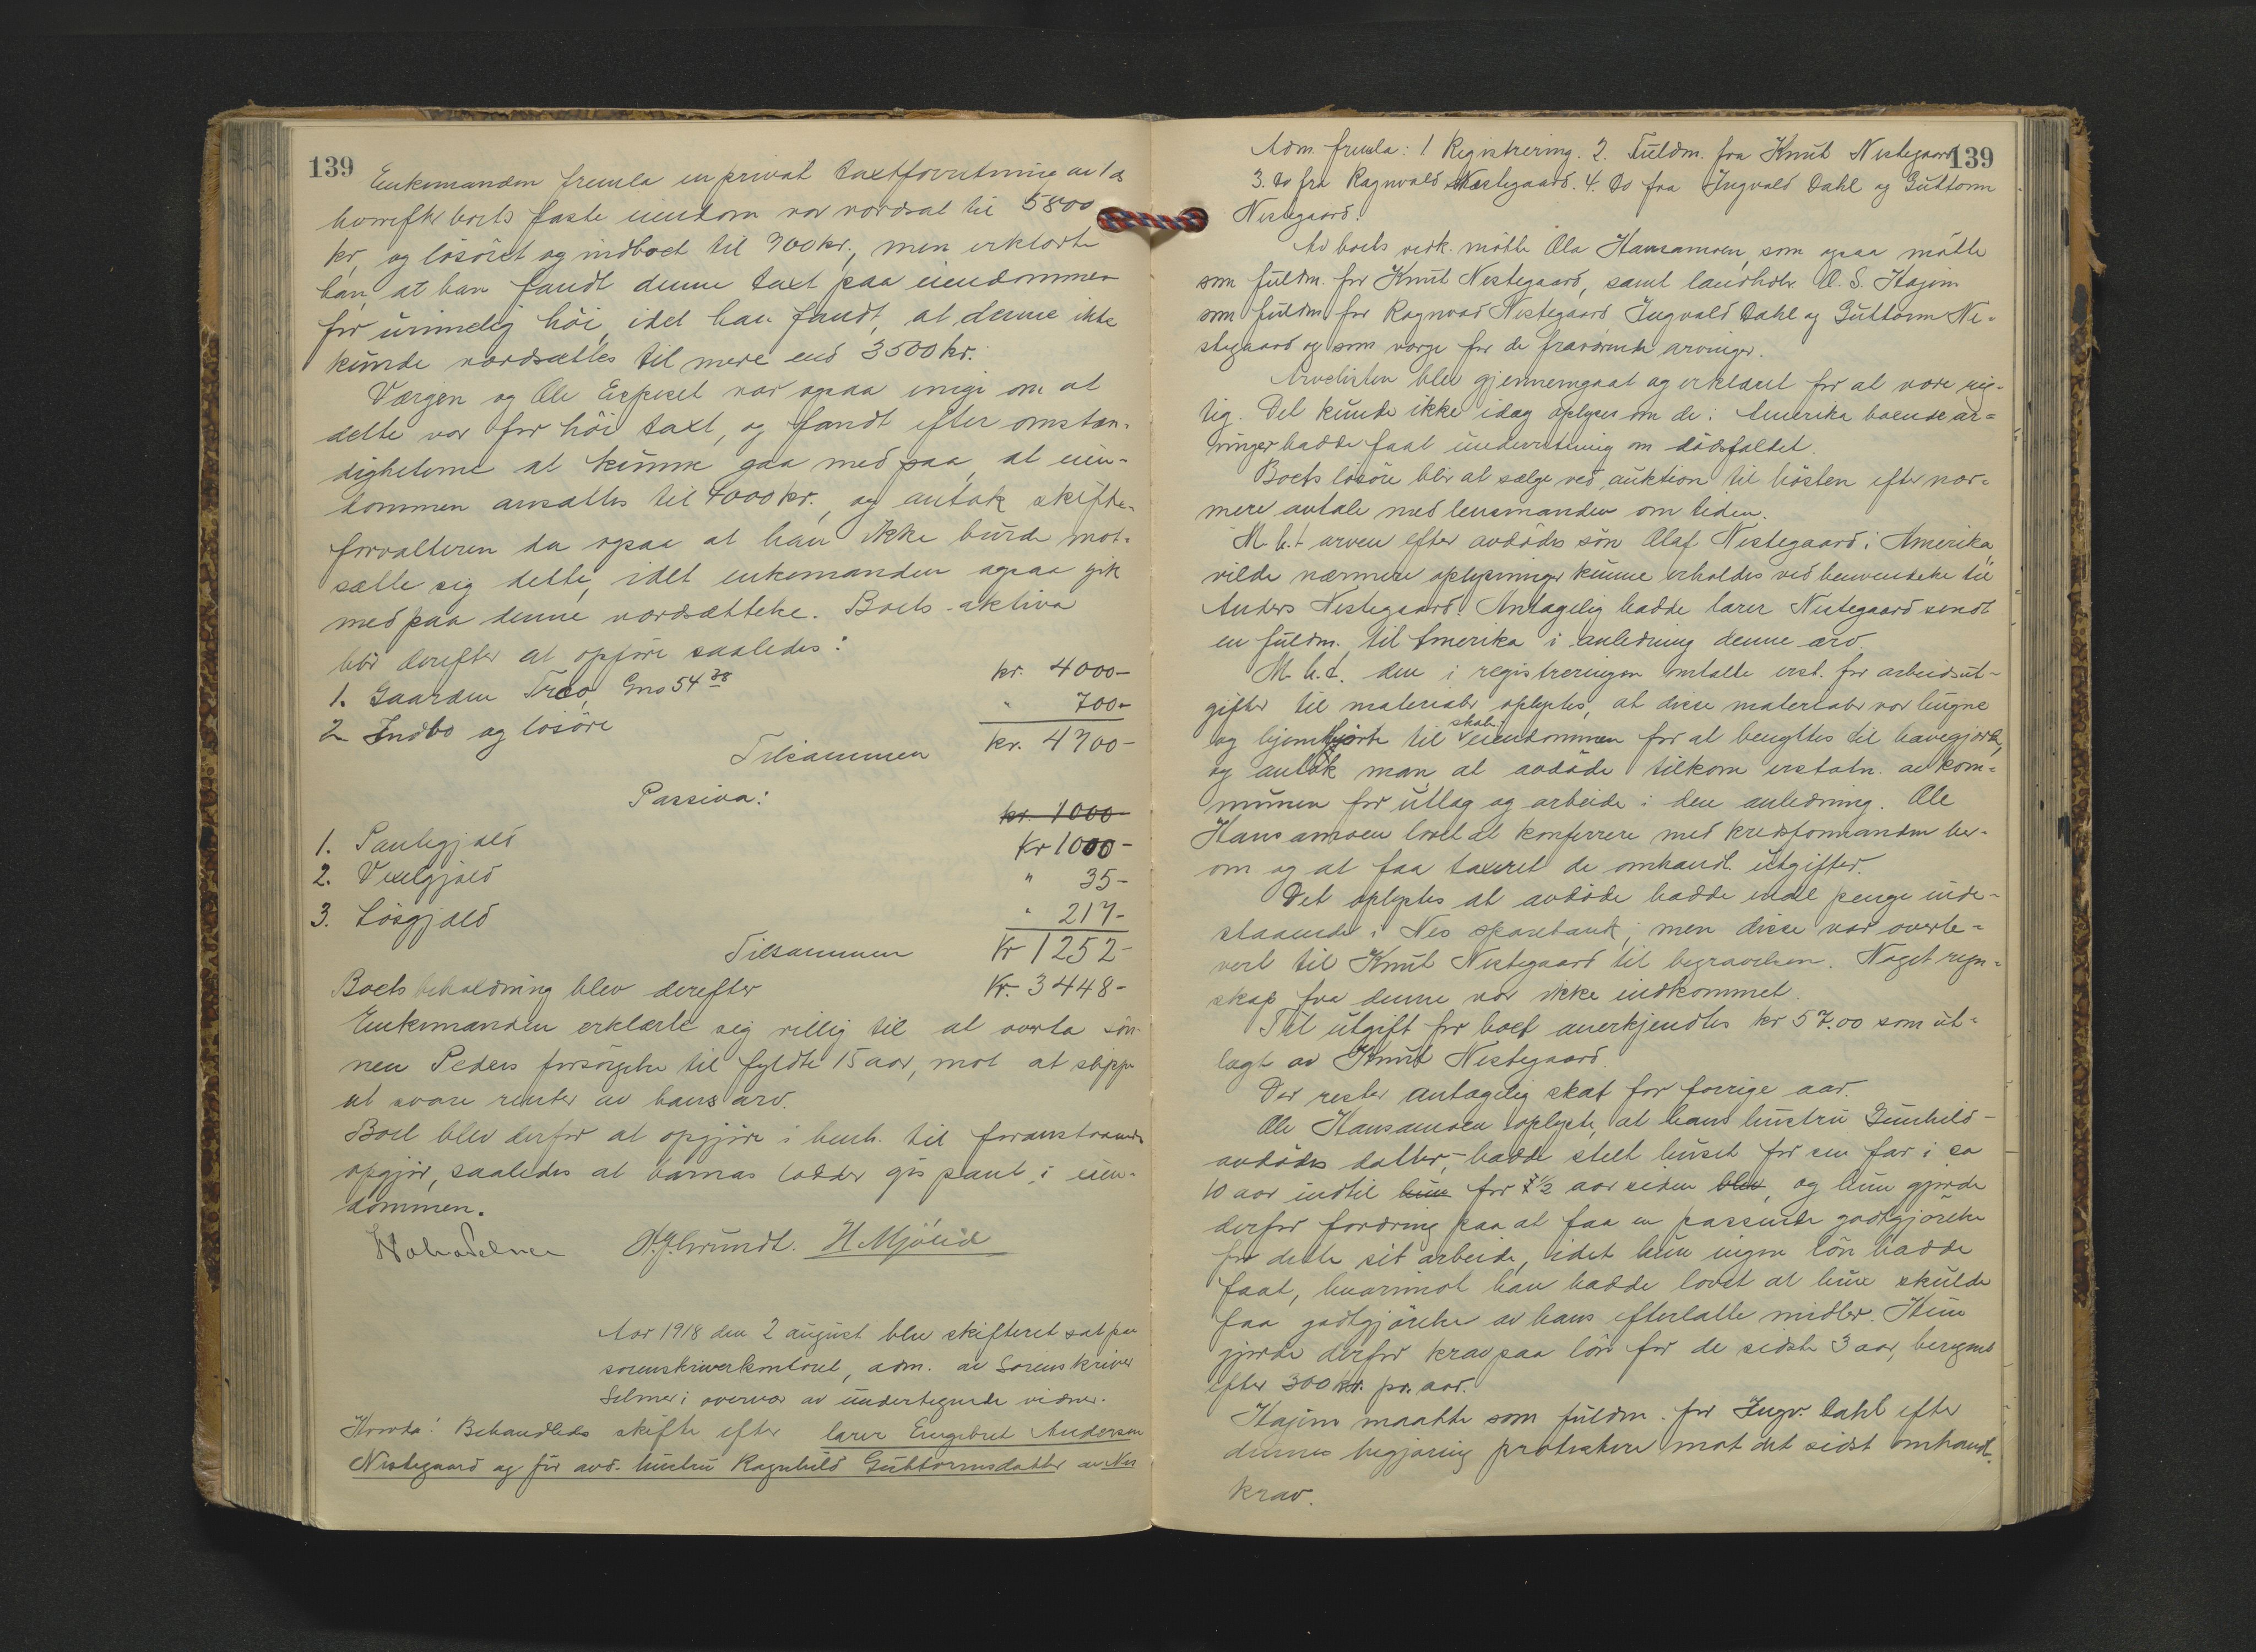 139
Enkemanden fremla en privat taxtforretning av 1 ds
hvorefter boets faste eiendom var værdsat til 5800
kr, og lösöret og indboet til 700 kr., men erklærte
han, at han fandt denne taxt paa eiendommen
for urimelig höi, idet han fandt, at denne ikke
kunde værdsættes til mere end 3500 kr.
Værgen og Ole Espeset var ogsaa enige om at
dette var for höi taxt, og fandt efter omstæn-
dighetene at kunne gaa med paa, at eien-
dommen ansattes til 4000 kr., og antok skifte-
forvalteren da ogsaa at han ikke burde mot-
sætte sig dette, idet enkemanden ogsaa gik
med paa denne værdsættelse. Boets aktiva
blir derefter at opföre saaledes:
1. Gaarden Træo, Gno 54 38 kr. 4000-
2. Indbo og lösöre " 700-
Tilsammen kr. 4700-
Passiva:
kr. 1000-
1. Pantegjæld Kr 1000-
2. Vexelgjæld " 35-
3. Lösgjæld " 217-
Tilsammen Kr 1252-
Boets beholdning blev derefter Kr. 3448-
Enkemanden erklærte sig villig til at overta søn-
nen Peders forsörgelse til fyldte 15 aar, mot at slippe
at svare renter av hans arv.
Boet blev derfor at opgjöre i henh. til foranstaaende
opgjör, saaledes at barnas lodder gis pant i eien-
dommen.
H. J. Grundt. H. Mjöcid
Aar 1918 den 2 august blev skifteret sat paa
sorenskriverkontoret, adm. av Sorenskriver
Selmer i overvær av undertegnede vidner.
Hvorda: Behandledes skifte efter lærer Engebret Andersen
Nestegaard og för avd. hustru Ragnhild Guttormsdatter av Nes
139
Adm. fremla: 1 Registrering. 2. Fuldm. fra Knut Nestegaard
3. do fra Ragnvald Nestegaard. 4. do fra Ingvald Dahl og Guttorm
Nestegaard.
Av boets vedk. mötte Ole Hansamoen, som ogsaa mötte
som fuldm. for Knut Nestegaard, samt landhdlr. O. S. Hagim
som fuldm. for Ragnvad Nestegaard Ingvald Dahl og Guttorm Ne-
stegaard og som værge for de fraværende arvinger.
Arvelisten blev gjennemgaat og erklæret for at være rig-
tig. Det kunde ikke idag oplyses om de i Amerika boende ar-
vinger hadde faat underretning om dödsfaldet.
Boets lösöre blir at sælge ved auktion til hösten efter nær-
mere avtale med lensmanden om tiden.
M. h. t. arven efter avdödes sön Olaf Nestegaard i Amerika,
vilde nærmere oplysninger kunne erholdes ved henvendelse til
Anders Nestegaard. Antagelig hadde lærer Nestegaard sendt
en fuldm. til Amerika i anledning denne arv.
M. h. t. den i registreringen omtalte erst. for arbeidsut-
gifter til materialer oplystes, at disse materialer var hugne
og hjemkjörte til skole eiendommen for at benyttes til havegjærde,
og antok man at avdöde tilkom erstatn. av kom-
munen for utlæg og arbeide i den anledning. Ole
Hansamoen lovet at konferrere med kredsformanden her-
om og at faa taxeret de omhandl. utgifter.
Det oplystes at avdöde hadde endel penge inde-
staaende i Nes sparebank; men disse var overle-
vert til Knut Nestegaard til begravelsen. Noget regn-
skap fra denne var ikke indkommet.
Til utgift for boet anerkjendtes kr 57.00 som ut-
lagt av Knut Nestegaard.
Der rester antagelig skat for forrige aar.
Ole Hansamoen oplyste, at hans hustru Gunhild -
avdödes datter, - hadde stelt huset for sin far i ca
10 aar indtil hun for 1/2 aar siden blev, og hun gjorde
derfor fordring paa at faa en passende godtgjörelse
for dette sit arbeide, idet hun ingen lön hadde
faat, hvorimot han hadde lovet at hun skulde
faa godtgjörelse av hans efterlatte midler. Hun
gjorde derfor krav paa lön for de sidste 3 aar, beregnet
efter 300 kr. pr. aar.
Hagim maatte som fuldm. for Ingv. Dahl efter
dennes begjæring protestere mot det sidst omhandl.
krav.